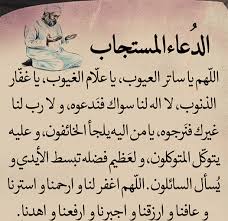 الدُعاء المستجاب
اللّهم يا ساتر العيوب، يا علّام الغيوب، يا غفّار
الذنوب، لا اله لنا سواك فندعوه، و لا رب لنا
غيرك فنرجوه، يا من اليه يلجأ الخائفون، و عليه
يتوكّل المتوكلون، و لعظيم فضله تبسط الأيدي و
يُسأل السائلون. اللّهم اغفر لنا و ارحمنا و استرنا
و عافنا و ارزقنا و اجبرنا و ارفعنا و اهدنا.